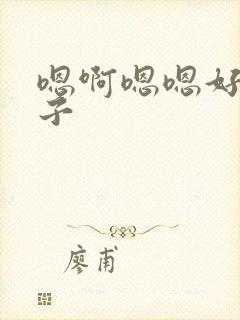 嗯啊嗯嗯好
子
廖甫